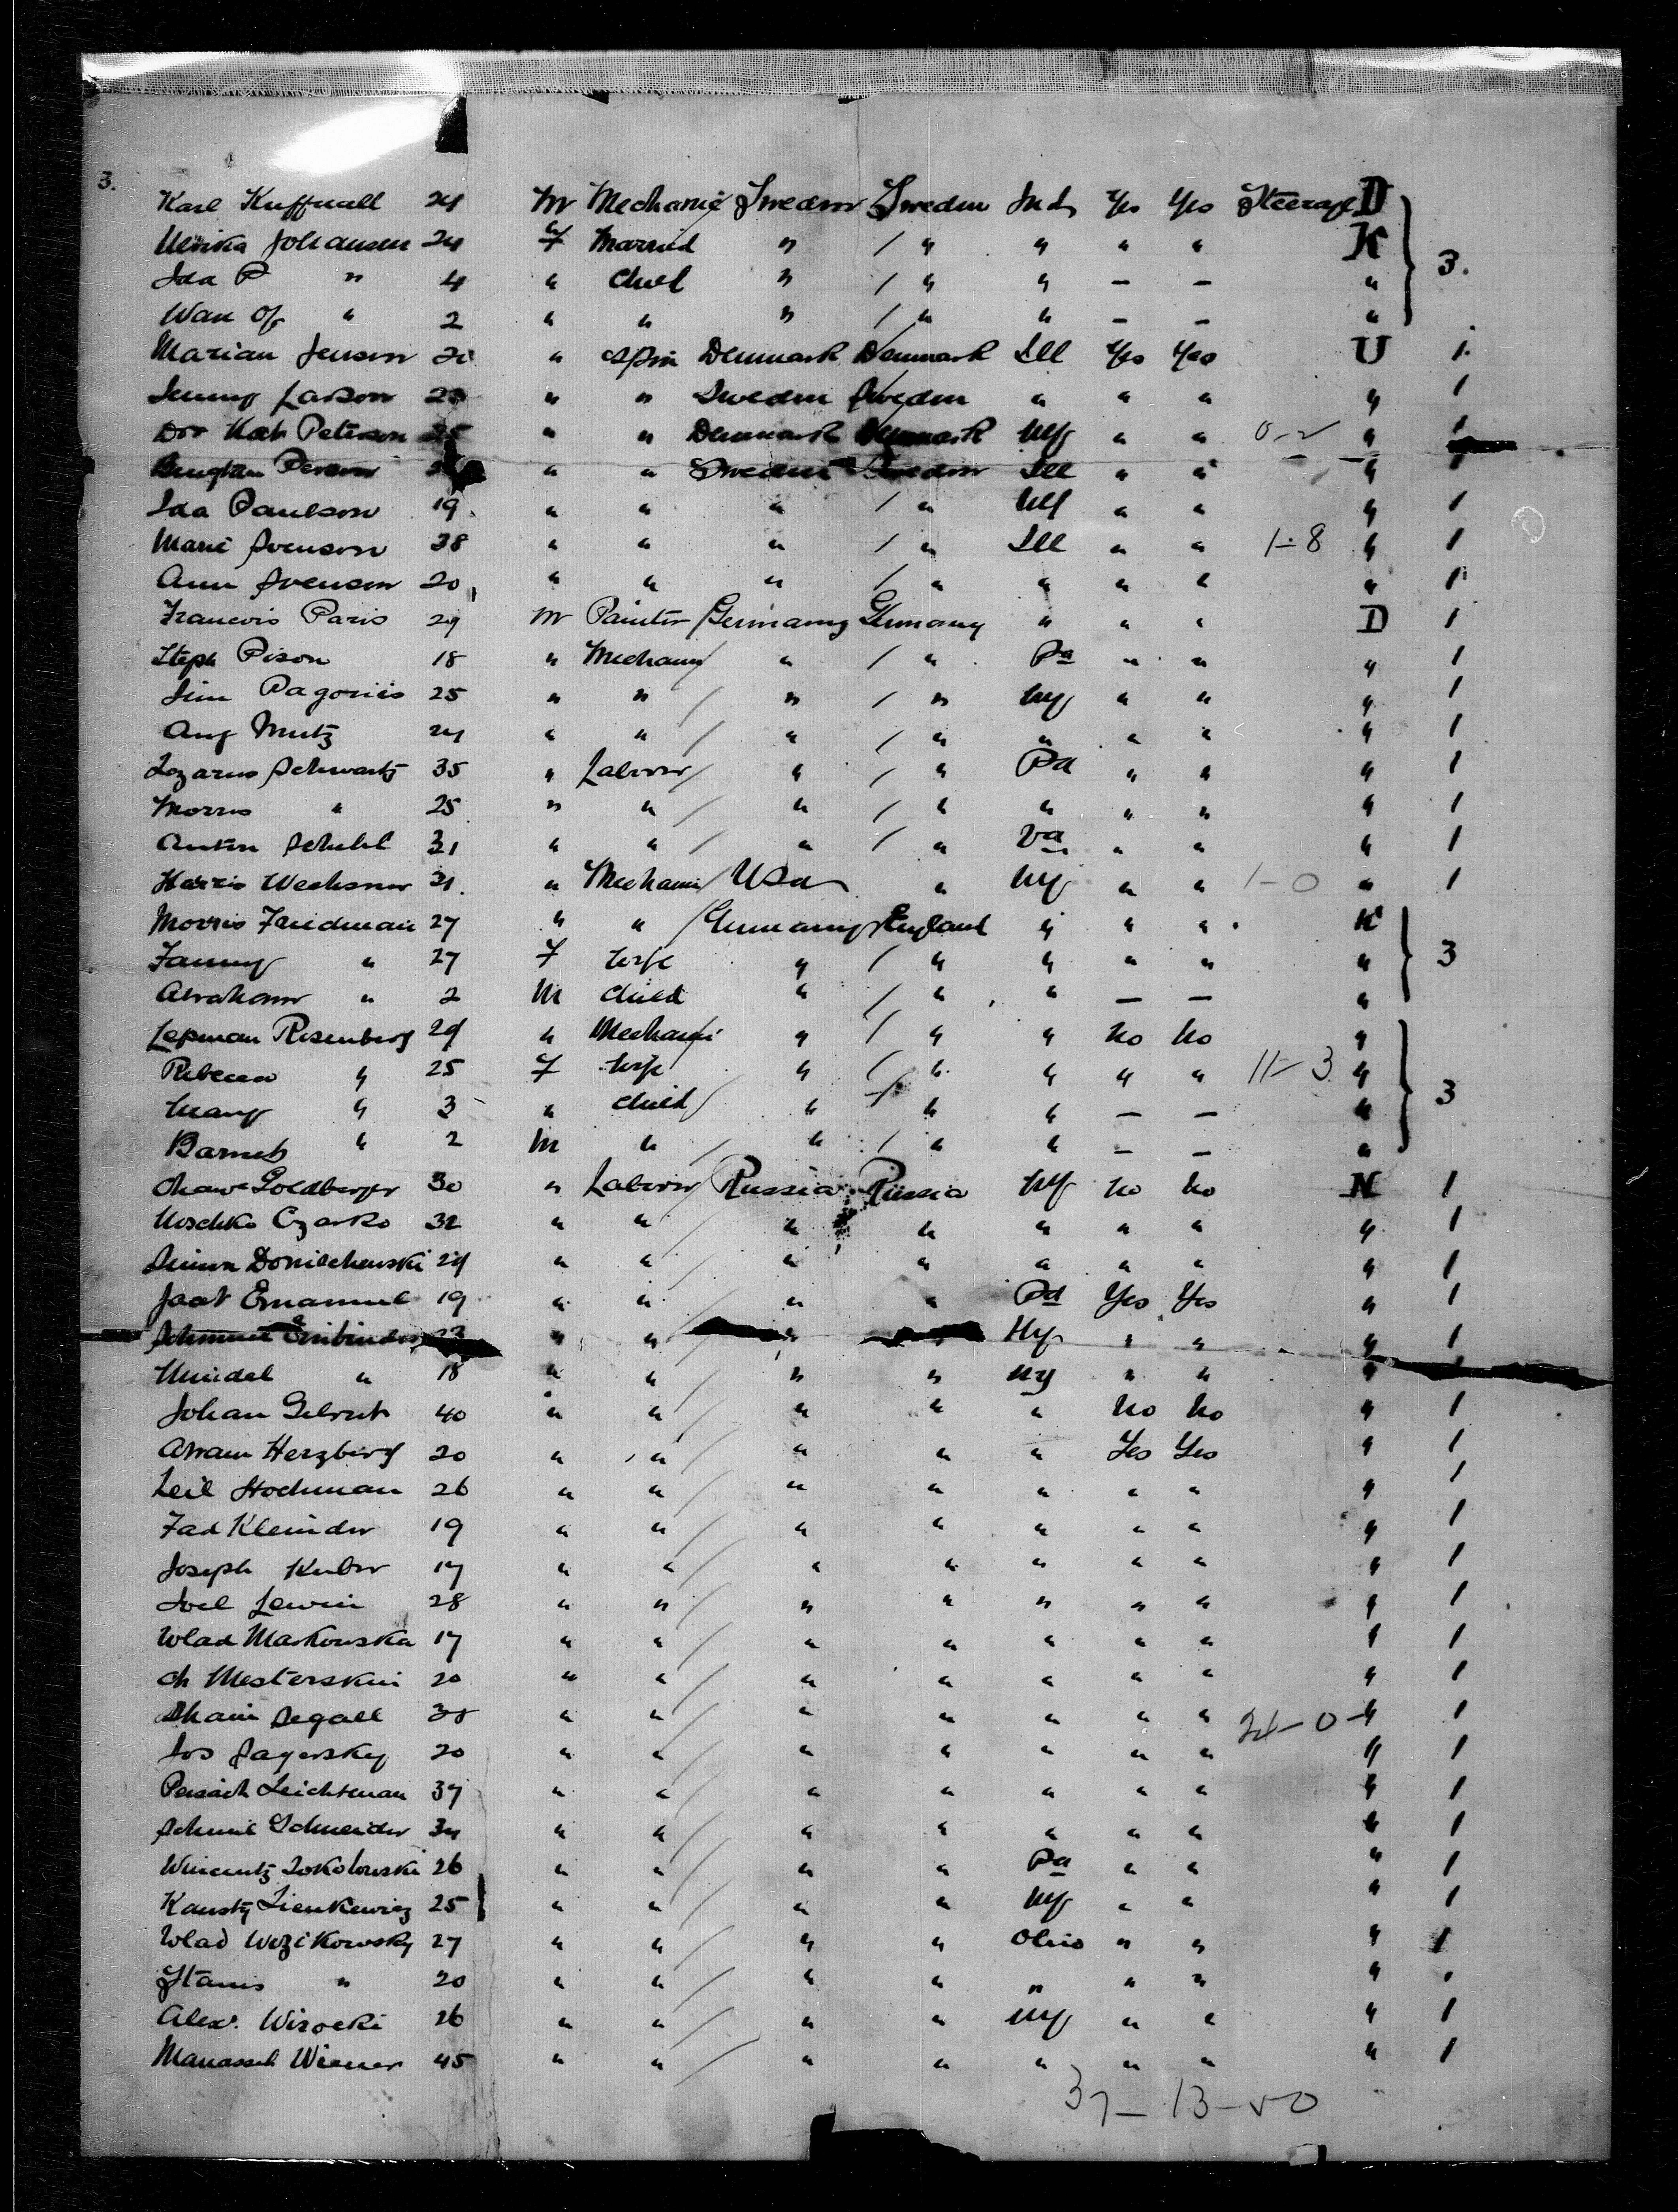 3.
Karl Kuffnall 24 M Mechanic Sweden Sweden Ind Yes Yes Steerage D
Ulrika Johansen 24 F Married " / " " " " K
Ida P " 4 " Chil " / " " — — " 3.
" 2 " " " / " " — — "
Marian Jenson " Spin Denmark Denmark Ill Yes Yes U 1.
Jenny Larson " " Sweden Sweden " " " " 1
Peterson " " Denmark Denmark NY " " " 1
" " Sweden Sweden Ill " " "
Ida Paulson 19 " " " / " NY " " " 1
Marie Svenson 38 " " " / " Ill " " 1-8 " 1
Ann Svenson 20 " " " / " " " " " 1
Francois Paris 29 M Painter / Germany Germany " " " D 1
Steph Pison 18 " Mechanic / " / " Pa " " " 1
Jim Pagoriis 25 " " / " / " NY " " " 1
Aug Mutz 24 " " / " / " " " " " 1
Lazarus Schwartz 35 " Laborer / " / " Pa " " " 1
Morris " 25 " " / " / " " " " " 1
Anton Schuhl 31 " " / " / " Va " " " 1
Harris Wechsner 31 " Mechanic / USA " NY " " 1-0 " 1
Morris Friedman 27 " " / Germany England " " " K
Fanny " 27 F Wife " / " " " " " 3
Abraham " 2 M Child " / " " — — "
Lepman Rosenberg 29 " Mechanic " / " " No No "
Rebecca " 25 F Wife " / " " " " 11-3 "
" 3 " Child / " / " " — — " 3
Barnet " 2 M " / " / " " — — "
Goldberger 30 " Laborer / Russia Russia NY No No N 1
Moschko Czarko 32 " " / " " " " " " 1
Simon Donilchewski 29 " " / " " " " " " 1
Emanuel 19 " " / " " Pa Yes Yes " 1
" " " " NY " " " 1
Mindel " 18 " " / " " NY " " "
Johan 40 " " / " " " No No " 1
Abram Herzberg 20 " " / " " " Yes Yes " 1
Leib Hochman 26 " " / " " " " " " 1
19 " " / " " " " " " 1
Joseph 17 " " / " " " " " " 1
Joel Lewin 28 " " / " " " " " " 1
Wlad Markowska 17 " " / " " " " " " 1
Ch Mesterskin 20 " " / " " " " " " 1
Segall " " / " " " " " 24-0 " 1
Jos Sagersky 20 " " / " " " " " " 1
Leichtman 37 " " / " " " " " " 1
Schmul Schneider 34 " " / " " " " " " 1
Wincentz Sokolowski 26 " " / " " Pa " " " 1
Kansty Sienkewicz 25 " " / " " NY " " " 1
Wlad Wozikowsky 27 " " / " " Ohio " " " 1
Stanis " 20 " " / " " " " " " 1
Alex. Wisocki 26 " " / " " NY " " " 1
Manasseh Wiener 45 " " / " " " " " " 1
37-13-50